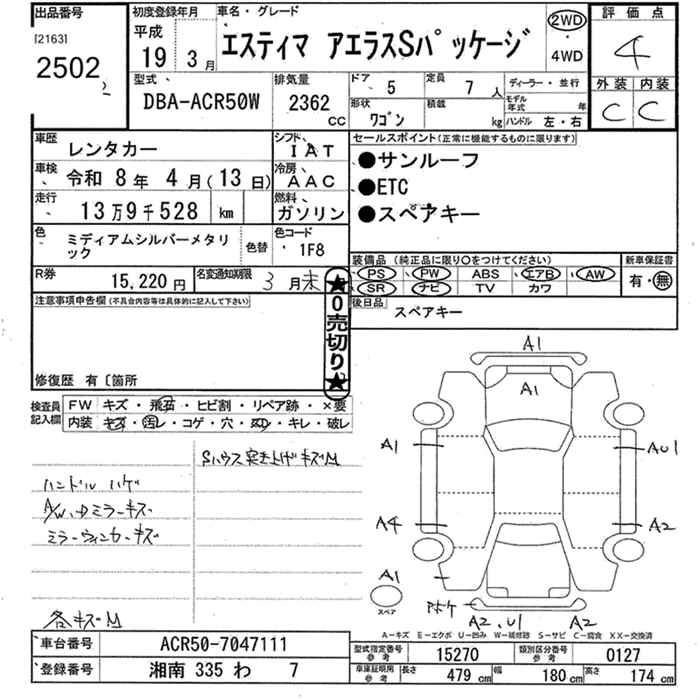 出品番号
[2163]
2502
初度登録年月
平成
19 3月
車名・グレード
エスティマ アエラスSパッケージ
2WD
・
4WD
評価点
4
外装 内装
C C
型式
DBA-ACR50W
排気量
2362 CC
ドア 5
定員 7 人
形状 ワゴン
積載 kg
ディーラー・並行
モデル年式 年
ハンドル 左・右
車歴 レンタカー
シフト IAT
車検 令和 8年 4月(13日)
冷房 AAC
走行 13万9千528 km
燃料 ガソリン
色 ミディアムシルバーメタリック 色替
色コード 1F8
セールスポイント(正常に機能するものに限ります)
●サンルーフ
●ETC
●スペアキー
装備品 (純正品に限り○をつけてください)
PS PW ABS エアB AW
SR ナビ TV カワ
新車保証書
有・無
R券 15,220円
名変通知期限 3月末
後日品 スペアキー
★0売切り★
注意事項申告欄(不具合内容等は具体的に記入して下さい)
修復歴 有〔箇所
検査員記入欄
FW キズ・飛石・ヒビ割・リペア跡・×要
内装 キズ・汚レ・コゲ・穴・ヌリ・キレ・破レ
Sハウス突き上げキズM
ハンドル ハゲ
A/W,ドアミラーキズ
ミラーウィンカーキズ
各キズM
A1
A1
A1 AU1
A4 A2
A1
スペア
A2,U1 A2
A-キズ E-エクボ U-凹み W-補修跡 S-サビ C-腐食 XX-交換済
車台番号 ACR50-7047111
登録番号 湘南 335 わ 7
型式指定番号 参考 15270
類別区分番号 参考 0127
車庫証明用 参考 長さ 479 cm 幅 180 cm 高さ 174 cm